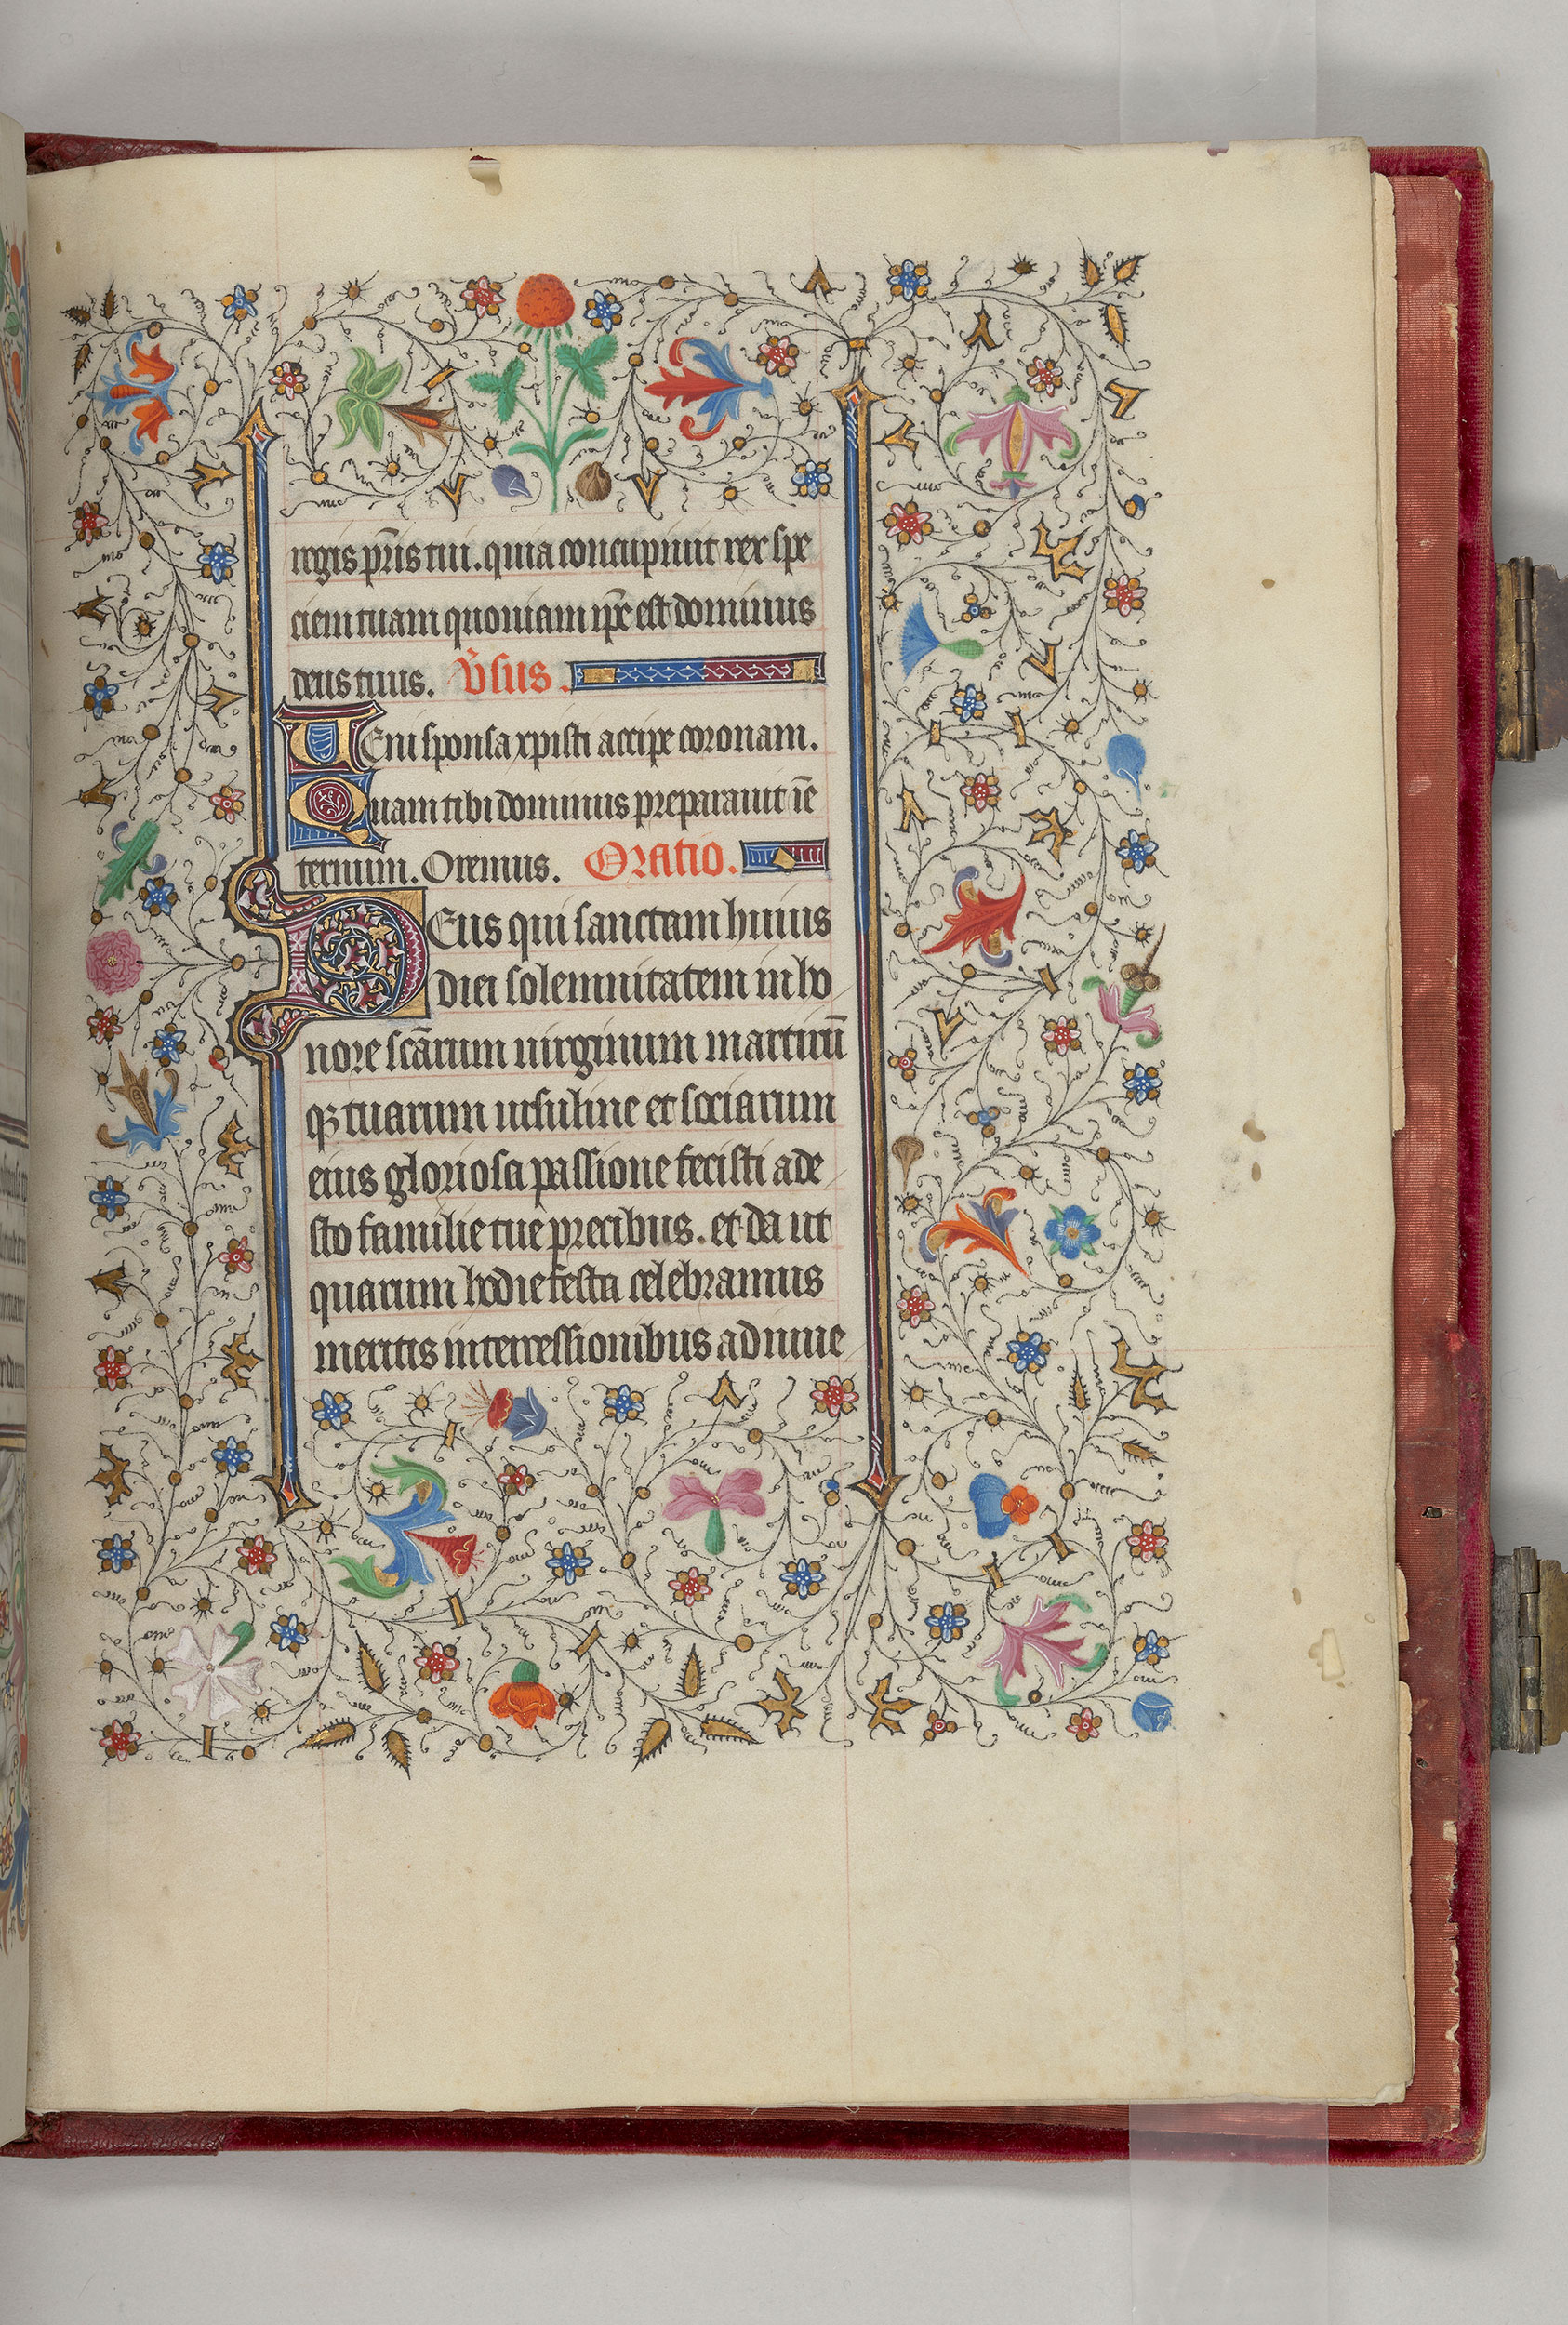 regis pr̄is tui. quia concupiuit rex spe
ciem tuam quoniam ip̄e est dominus
deus tuus. V̄sus.
Veni sponsa xpisti accipe coronam.
Quam tibi dominus preparauit ī e
ternum. Oremus. Oratio.
Deus qui sanctam huius
diei solemnitatem in ho
nore sc̄arum uirginum martirū
qꝫ tuarum ursuline et sociarum
eius gloriosa passione fecisti ade
sto familie tue precibus. et da ut
quarum hodie festa celebramus
meritis intercessionibus adiuue